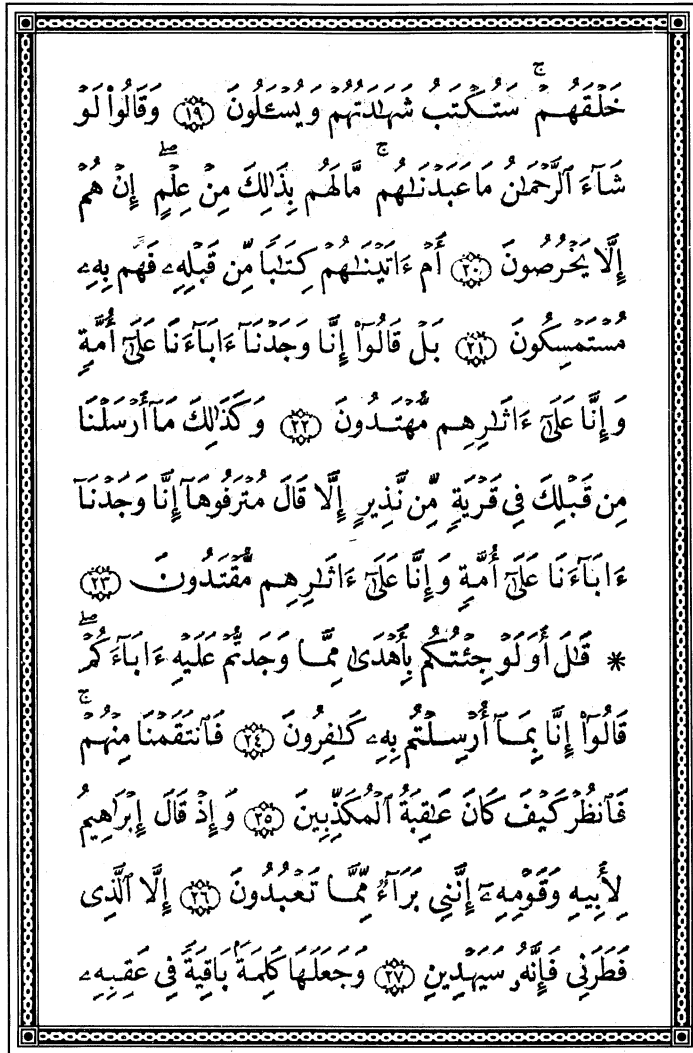 خَلْقَهُمْ ۚ سَتُكْتَبُ شَهَـٰدَتُهُمْ وَيُسْـَٔلُونَ ١٩ وَقَالُوا۟ لَوْ
شَآءَ ٱلرَّحْمَـٰنُ مَا عَبَدْنَـٰهُم ۚ مَّا لَهُم بِذَٰلِكَ مِنْ عِلْمٍ ۖ إِنْ هُمْ
إِلَّا يَخْرُصُونَ ٢٠ أَمْ ءَاتَيْنَـٰهُمْ كِتَـٰبًا مِّن قَبْلِهِۦ فَهُم بِهِۦ
مُسْتَمْسِكُونَ ٢١ بَلْ قَالُوٓا۟ إِنَّا وَجَدْنَآ ءَابَآءَنَا عَلَىٰٓ أُمَّةٍ
وَإِنَّا عَلَىٰٓ ءَاثَـٰرِهِم مُّهْتَدُونَ ٢٢ وَكَذَٰلِكَ مَآ أَرْسَلْنَا
مِن قَبْلِكَ فِى قَرْيَةٍ مِّن نَّذِيرٍ إِلَّا قَالَ مُتْرَفُوهَآ إِنَّا وَجَدْنَآ
ءَابَآءَنَا عَلَىٰٓ أُمَّةٍ وَإِنَّا عَلَىٰٓ ءَاثَـٰرِهِم مُّقْتَدُونَ ٢٣
* قَـٰلَ أَوَلَوْ جِئْتُكُم بِأَهْدَىٰ مِمَّا وَجَدتُّمْ عَلَيْهِ ءَابَآءَكُمْ ۖ
قَالُوٓا۟ إِنَّا بِمَآ أُرْسِلْتُم بِهِۦ كَـٰفِرُونَ ٢٤ فَٱنتَقَمْنَا مِنْهُمْ ۚ
فَٱنظُرْ كَيْفَ كَانَ عَـٰقِبَةُ ٱلْمُكَذِّبِينَ ٢٥ وَإِذْ قَالَ إِبْرَٰهِيمُ
لِأَبِيهِ وَقَوْمِهِۦٓ إِنَّنِى بَرَآءٌ مِّمَّا تَعْبُدُونَ ٢٦ إِلَّا ٱلَّذِى
فَطَرَنِى فَإِنَّهُۥ سَيَهْدِينِ ٢٧ وَجَعَلَهَا كَلِمَةًۢ بَاقِيَةً فِى عَقِبِهِۦ